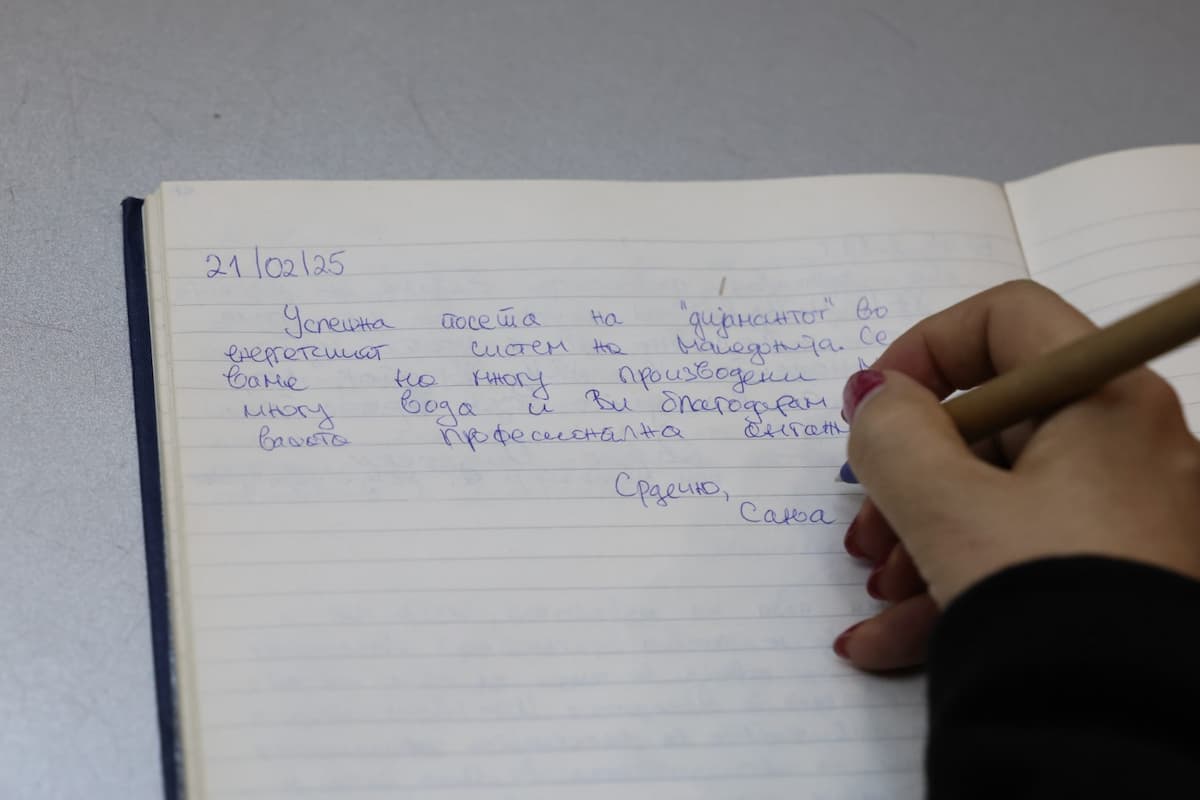 21/02/25
Успешна посета на "дијамантот" во
енергетскиот систем на Македонија. Се
ваме на многу произведени
многу вода и Ви благодарам
вашата професионална
Срдечно,
Сања